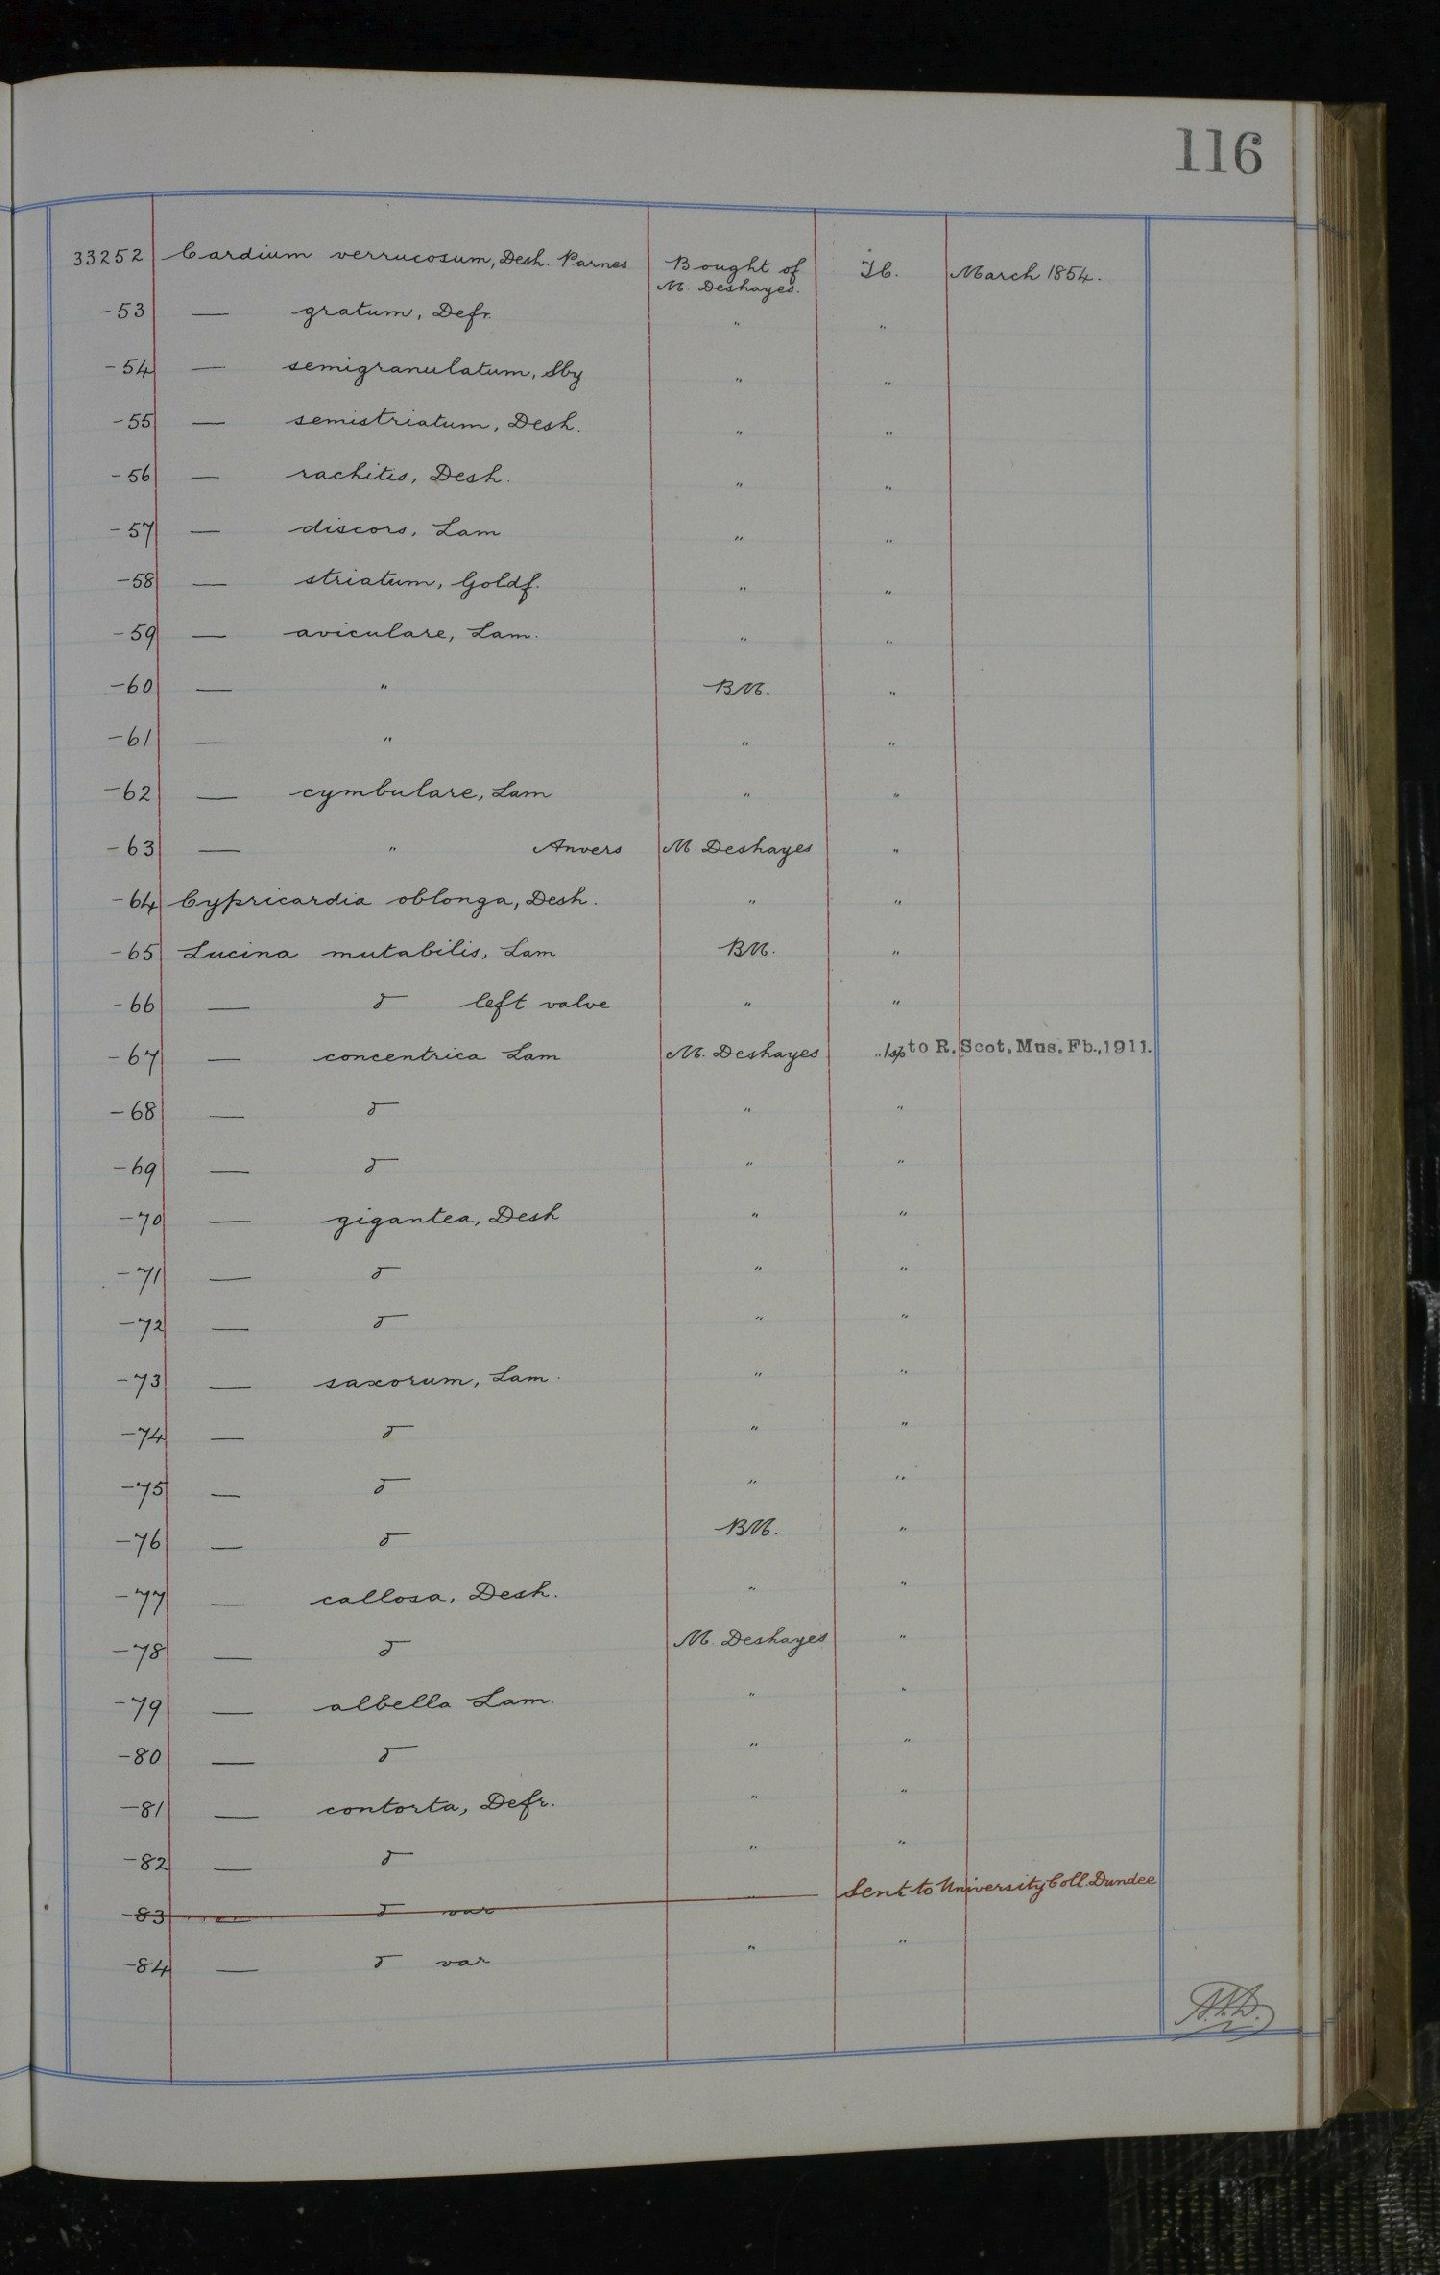 116
33252 Cardium verrucosum, Desh. Parnes Bought of M. Deshayes. Ib. March 1854.
-53 — gratum, Defr. " "
-54 — semigranulatum, Sby " "
-55 — semistriatum, Desh. " "
-56 — rachitis, Desh. " "
-57 — discors, Lam " "
-58 — striatum, Goldf. " "
-59 — aviculare, Lam. " "
-60 — " BM. "
-61 — " " "
-62 — cymbulare, Lam " "
-63 — " Anvers M Deshayes "
-64 Cypricardia oblonga, Desh. " "
-65 Lucina mutabilis, Lam BM. "
-66 — do left valve " "
-67 — concentrica Lam M. Deshayes " 1sp to R. Scot. Mus. Fb., 1911.
-68 — do " "
-69 — do " "
-70 — gigantea, Desh " "
-71 — do " "
-72 — do " "
-73 — saxorum, Lam. " "
-74 — do " "
-75 — do " "
-76 — do BM. "
-77 — callosa, Desh. " "
-78 — do M. Deshayes "
-79 — albella Lam. " "
-80 — do " "
-81 — contorta, Defr. " "
-82 — do " "
-83 — do var " Sent to University Coll. Dundee
-84 — do var " "